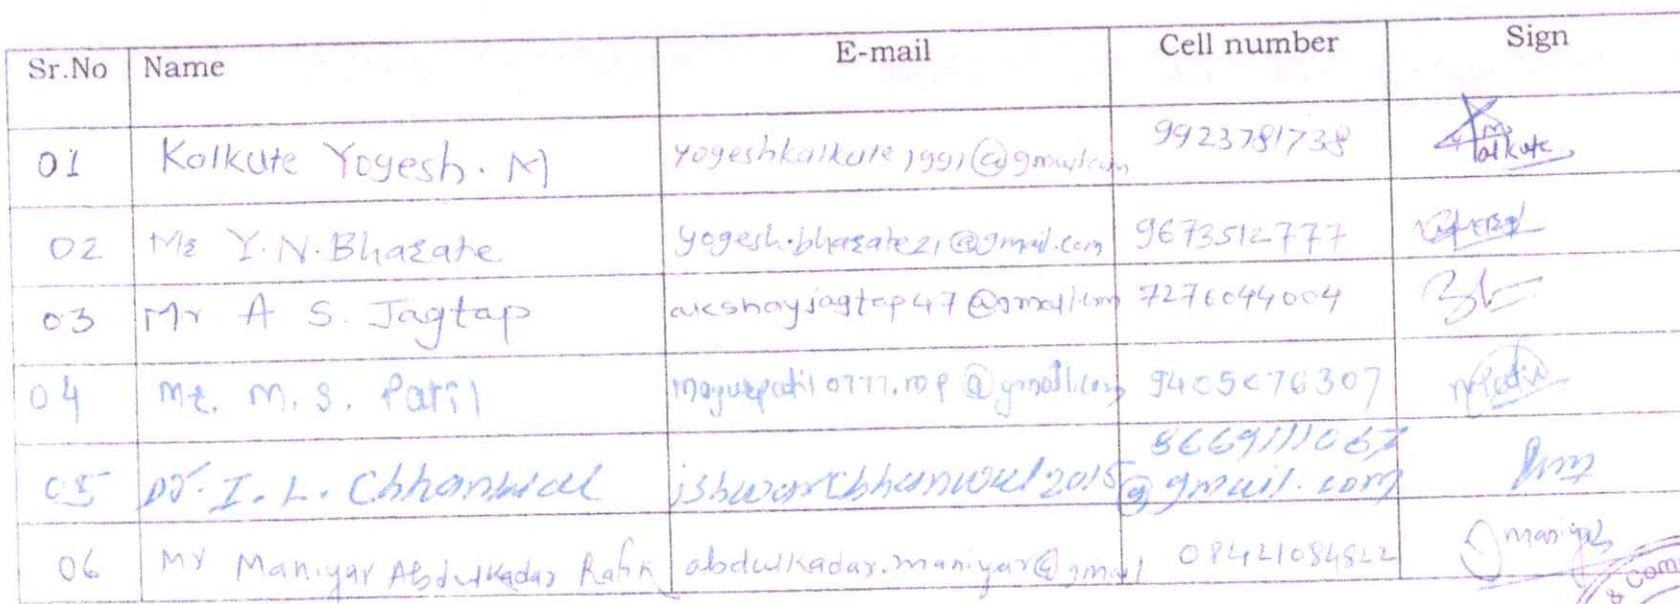 Sr.No Name E-mail Cell number Sign
01 Kalkute Yogesh. M yogeshkalkute1991@gmail.com 9923781738 Kalkute
02 Mr Y.N.Bharate yogesh.bharate21@gmail.com 9673512777
03 Mr A S. Jagtap akshayjagtap47@gmail.com 7276044004
04 Mr. M. S. Patil mayurpatil0777.mp@gmail.com 9405076307 MPatil
05 Dr. I. L. Chhanwal ishwarchhanwal2015@gmail.com 8669111067
06 Mr Maniyar Abdulkadar Rafik abdulkadar.maniyar@gmail 08421084822 maniyar
& Com